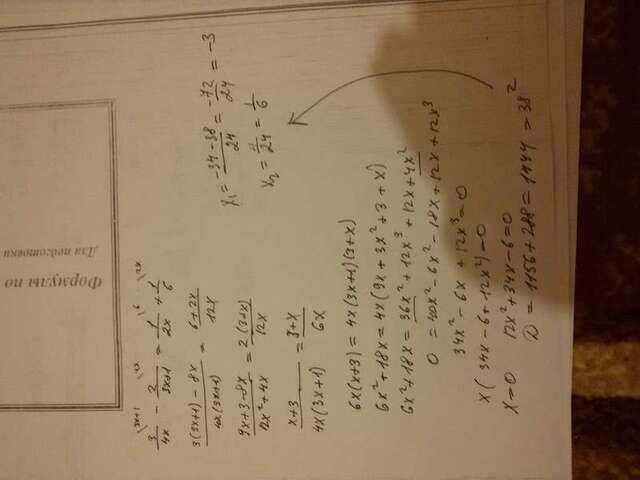 Формулы по
Для подготовки
3/4x - 2/3x+1 = 1/2x + 1/6
3(3x+1) - 8x / 4x(3x+1) = 6+2x / 12x
9x+3-8x / 12x²+4x = 2(3+x) / 12x
x+3 / 4x(3x+1) = 3+x / 6x
6x(x+3) = 4x(3x+1)(3+x)
6x²+18x = 4x(9x+3x²+3+x)
6x²+18x = 36x²+12x³+12x+4x²
0 = 40x²-6x²-18x+12x+12x³
34x²-6x+12x³=0
x(34x-6+12x²)=0
x=0 12x²+34x-6=0
D = 1156+288=1444=38²
x₁= -34-38 / 24 = -72 / 24 = -3
x₂= 4/24 = 1/6